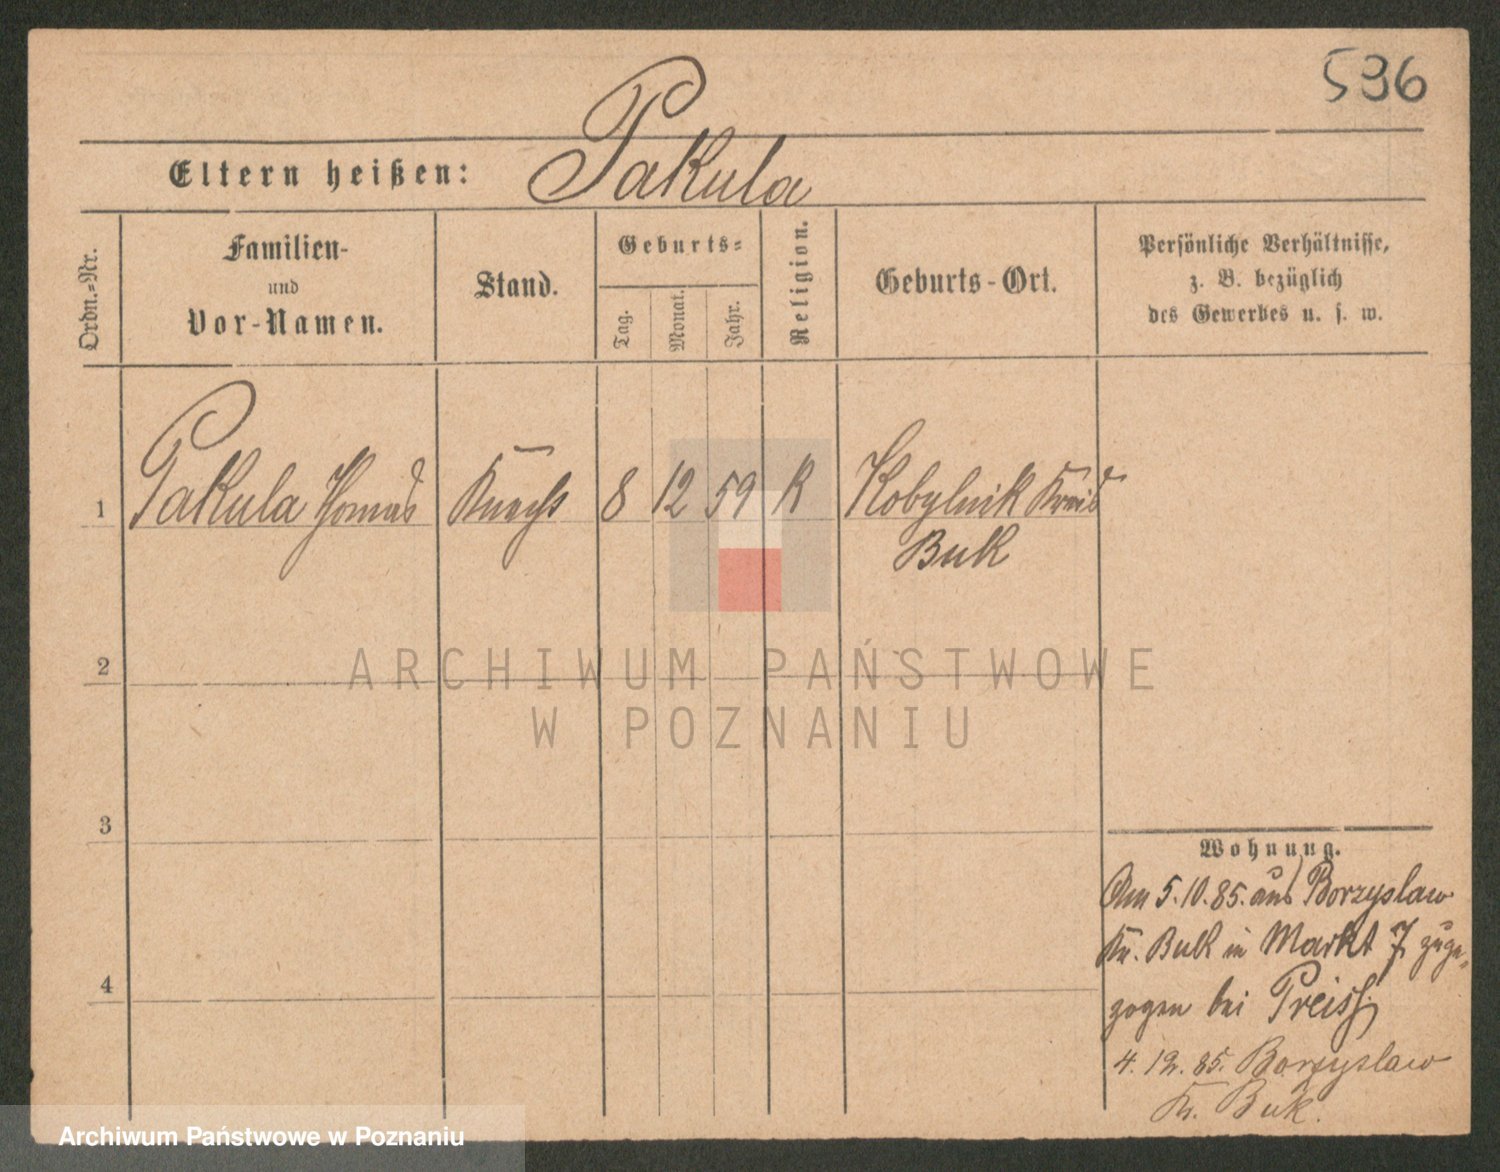 596
Eltern heißen: Pakula
Ordn.-Nr.
Familien-
und
Vor-Namen.
Stand.
Geburts-
Tag.
Monat.
Jahr.
Religion.
Geburts-Ort.
Persönliche Verhältnisse,
z. B. bezüglich
des Gewerbes u. s. w.
1 Pakula Thomas Knecht 8 12 59 K Kobylnik Kreis
Buk
2
3
4
Wohnung.
Am 5.10.85. aus Borzyslaw
Kr. Buk in Markt 7 zuge-
zogen bei Preiss.
4. 12. 85. Borzyslaw
Kr. Buk.
ARCHIWUM PAŃSTWOWE
W POZNANIU
Archiwum Państwowe w Poznaniu